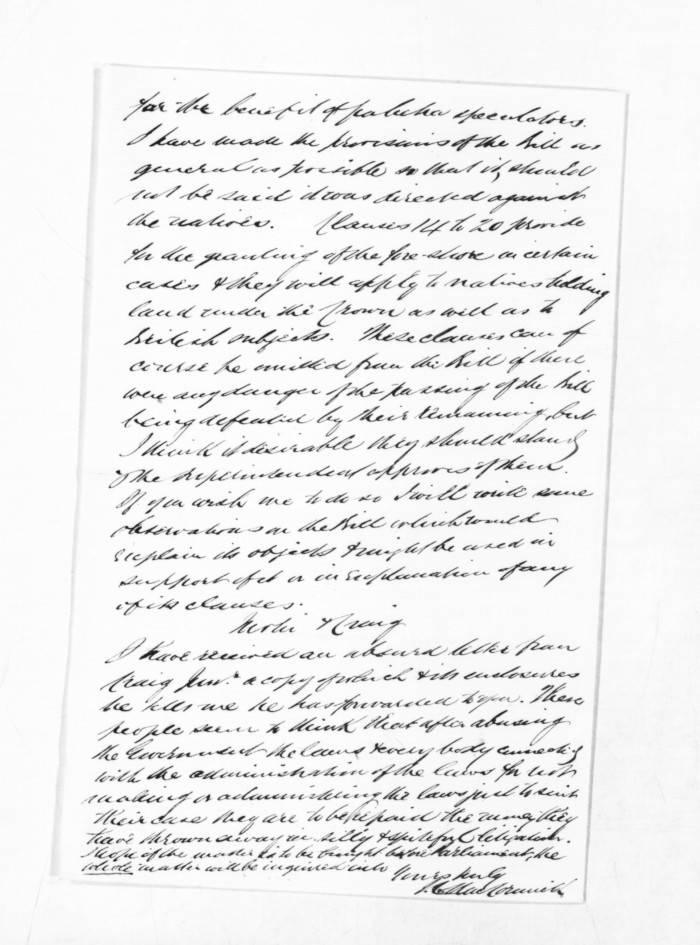 for the benefit of pakeha speculators.
I have made the provisions of the Bill as
general as possible so that it should
not be said it was directed against
the natives. Clauses 14 to 20 provide
for the granting of the fore-shore in certain
cases & they will apply to natives holding
land under the Crown as well as to
British subjects. These clauses can of
course be omitted from the Bill if there
were any danger of the passing of the Bill
being defeated by their remaining, but
I think it desirable they should stand
& the Superintendent approves of them.
If you wish me to do so I will write some
observations on the Bill which would
explain its objects & might be used in
support of it or in explanation of any
of its clauses.
& Craig
I have received an absurd letter from
Craig Junr. a copy of which & its enclosures
he tells me he has forwarded to you. These
people seem to think that after abusing
the Government the laws & every body connected
with the administration of the laws for not
making or administering the laws just to suit
their case they are to be repaid the money they
have thrown away in silly & spiteful litigation.
I hope if the matter is to be brought before Parliament, the
whole matter will be inquired into
Yours truly
MacCormick